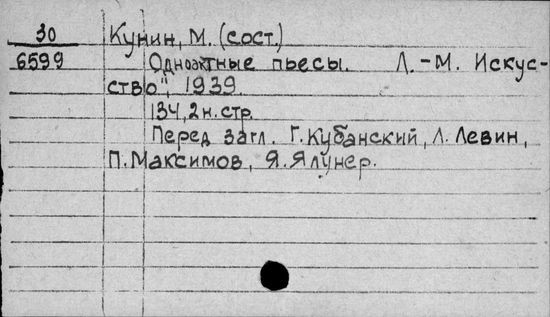 30 Кунин, М. (сост.)
6599 Одноактные пьесы. Л.-М. Искус-
ство", 1939.
134, 2 н. стр.
Перед загл. Г. Кубанский, Л. Левин,
П. Максимов, Я. Ялунер.